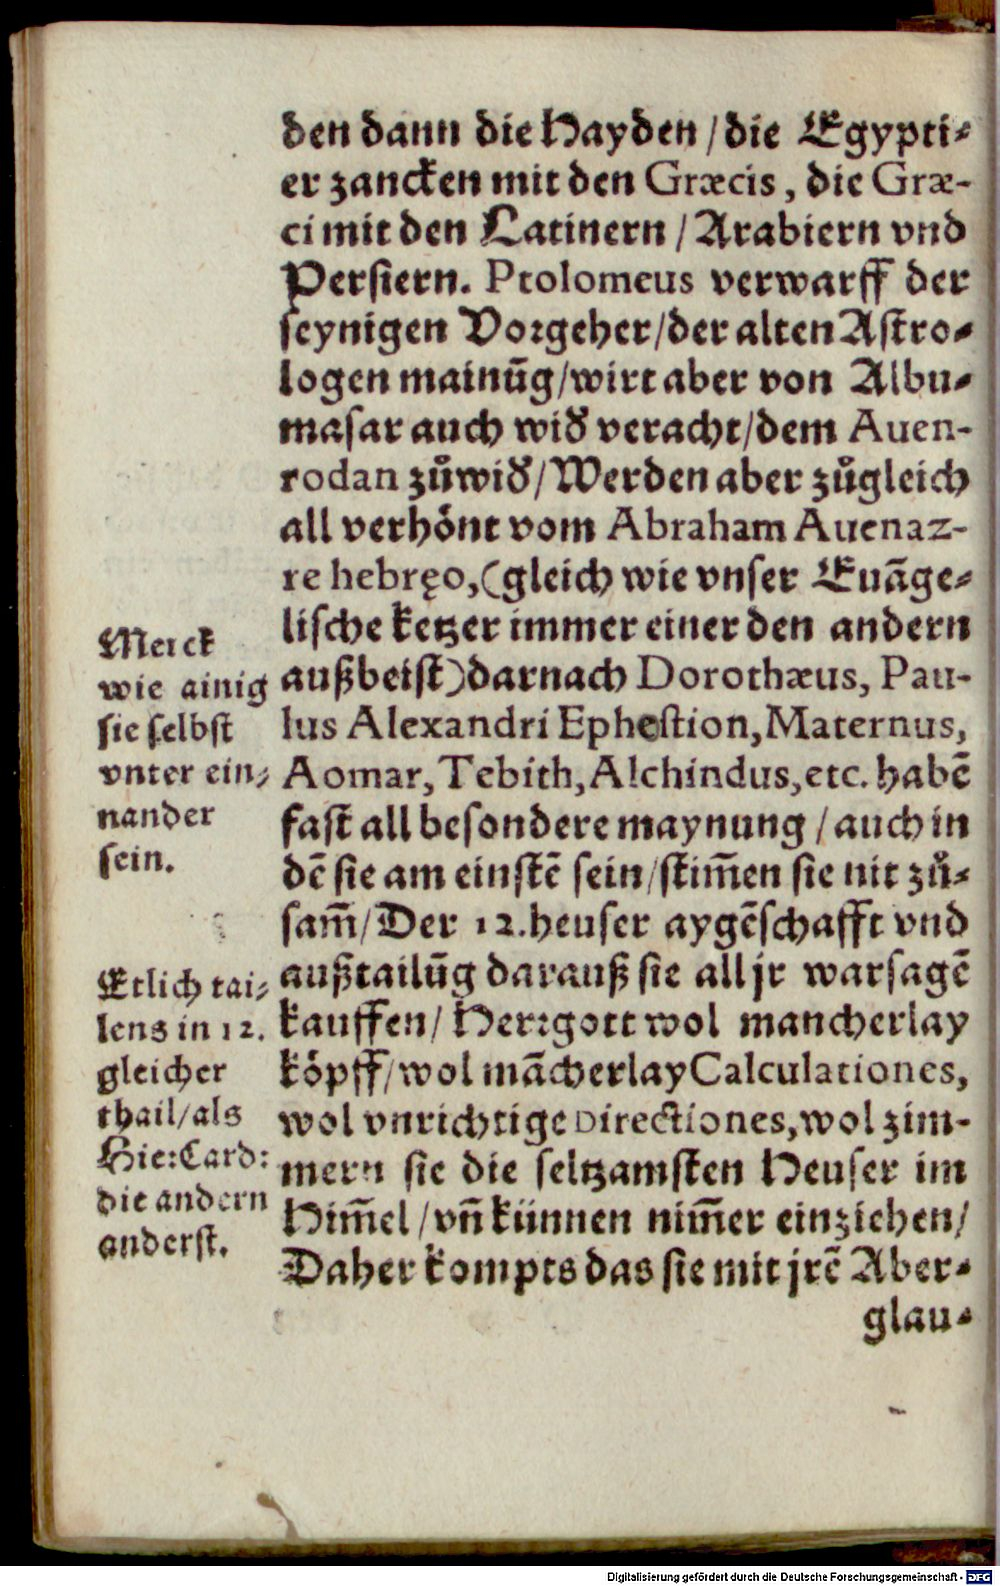 den dann die Hayden /die Egypti-
er zancken mit den Græcis, die Græ-
ci mit den Latinern / Arabiern vnd
Persiern. Ptolomeus verwarff der
seynigen Vorgeher/der alten Astro-
logen mainūg/wirt aber von Albu-
masar auch wid̕ veracht/dem Auen-
rodan zůwid̕/Werden aber zůgleich
all verhönt vom Abraham Auenaz-
re hebręo,(gleich wie vnser Euāge-
lische ketzer immer einer den andern
außbeist)darnach Dorothæus, Pau-
lus Alexandri Ephestion,Maternus,
Aomar,Tebith,Alchindus,etc. habē
fast all besondere maynung /auch in
dē sie am einstē sein/stim̄en sie nit zů-
sam̄/Der 12.heuser aygēschafft vnd
außtailūg darauß sie all jr warsagē
kauffen/ Herrgott wol mancherlay
köpff/wol mācherlay Calculationes,
wol vnrichtige Directiones,wol zim-
mern sie die seltzamsten Heuser im
Him̄el /vn̄ künnen nim̄er einziehen/
Daher kompts das sie mit jrē Aber-
glau-
Merck
wie ainig
sie selbst
vnter ein-
nander
sein.
Etlich tai-
lens in 12.
gleicher
thail/als
Hie:Card:
die andern
anderst.
Digitalisierung gefördert durch die Deutsche Forschungsgemeinschaft - DFG